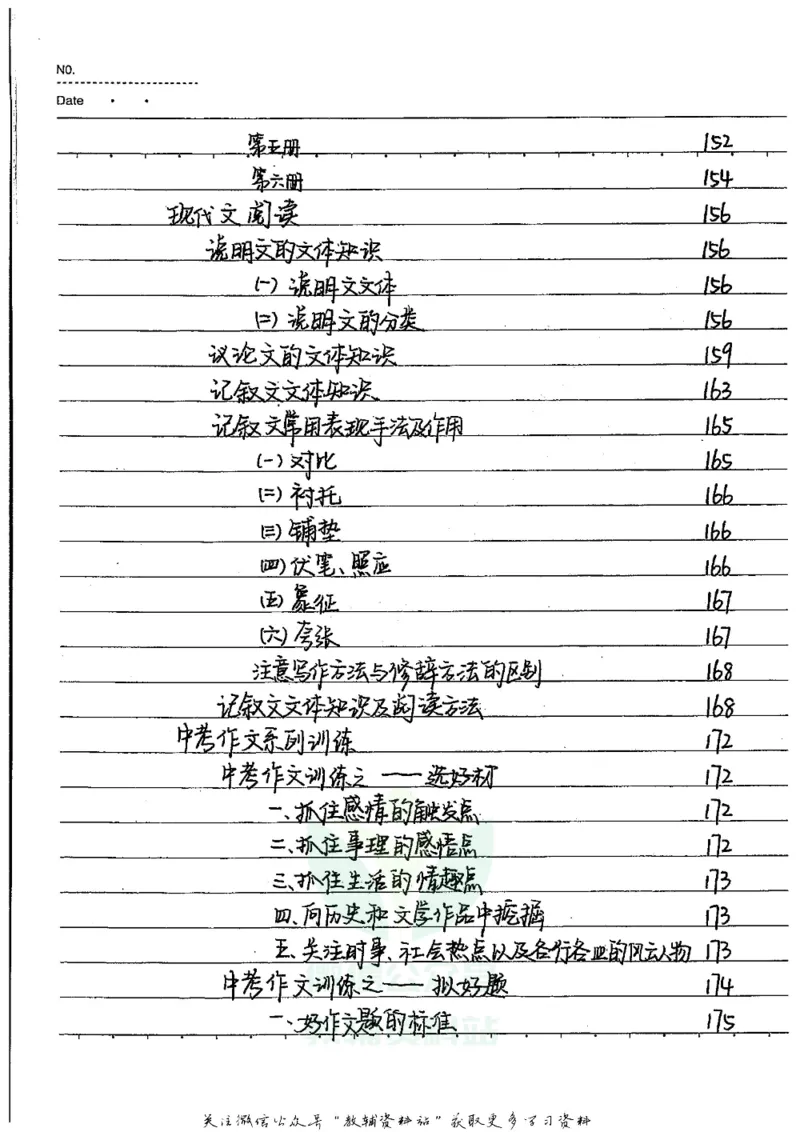 NO.
Date
第五册 152
第六册 154
现代文阅读 156
说明文的文体知识 156
(一)说明文文体 156
(二)说明文的分类 156
议论文的文体知识 159
记叙文文体知识 163
记叙文常用表现手法及作用 165
(一)对比 165
(二)衬托 166
(三)铺垫 166
(四)伏笔、照应 166
(五)象征 167
(六)夸张 167
注意写作方法与修辞方法的区别 168
记叙文文体知识及阅读方法 168
中考作文系列训练 172
中考作文训练之——选好材 172
一、抓住感情的触发点 172
二、抓住事理的感悟点 172
三、抓住生活的情趣点 173
四、向历史和文学作品中挖掘 173
五、关注时事、社会热点以及各行各业的风云人物 173
中考作文训练之——拟好题 174
一、好作文题的标准 175
关注微信公众号"教辅资料站"获取更多学习资料